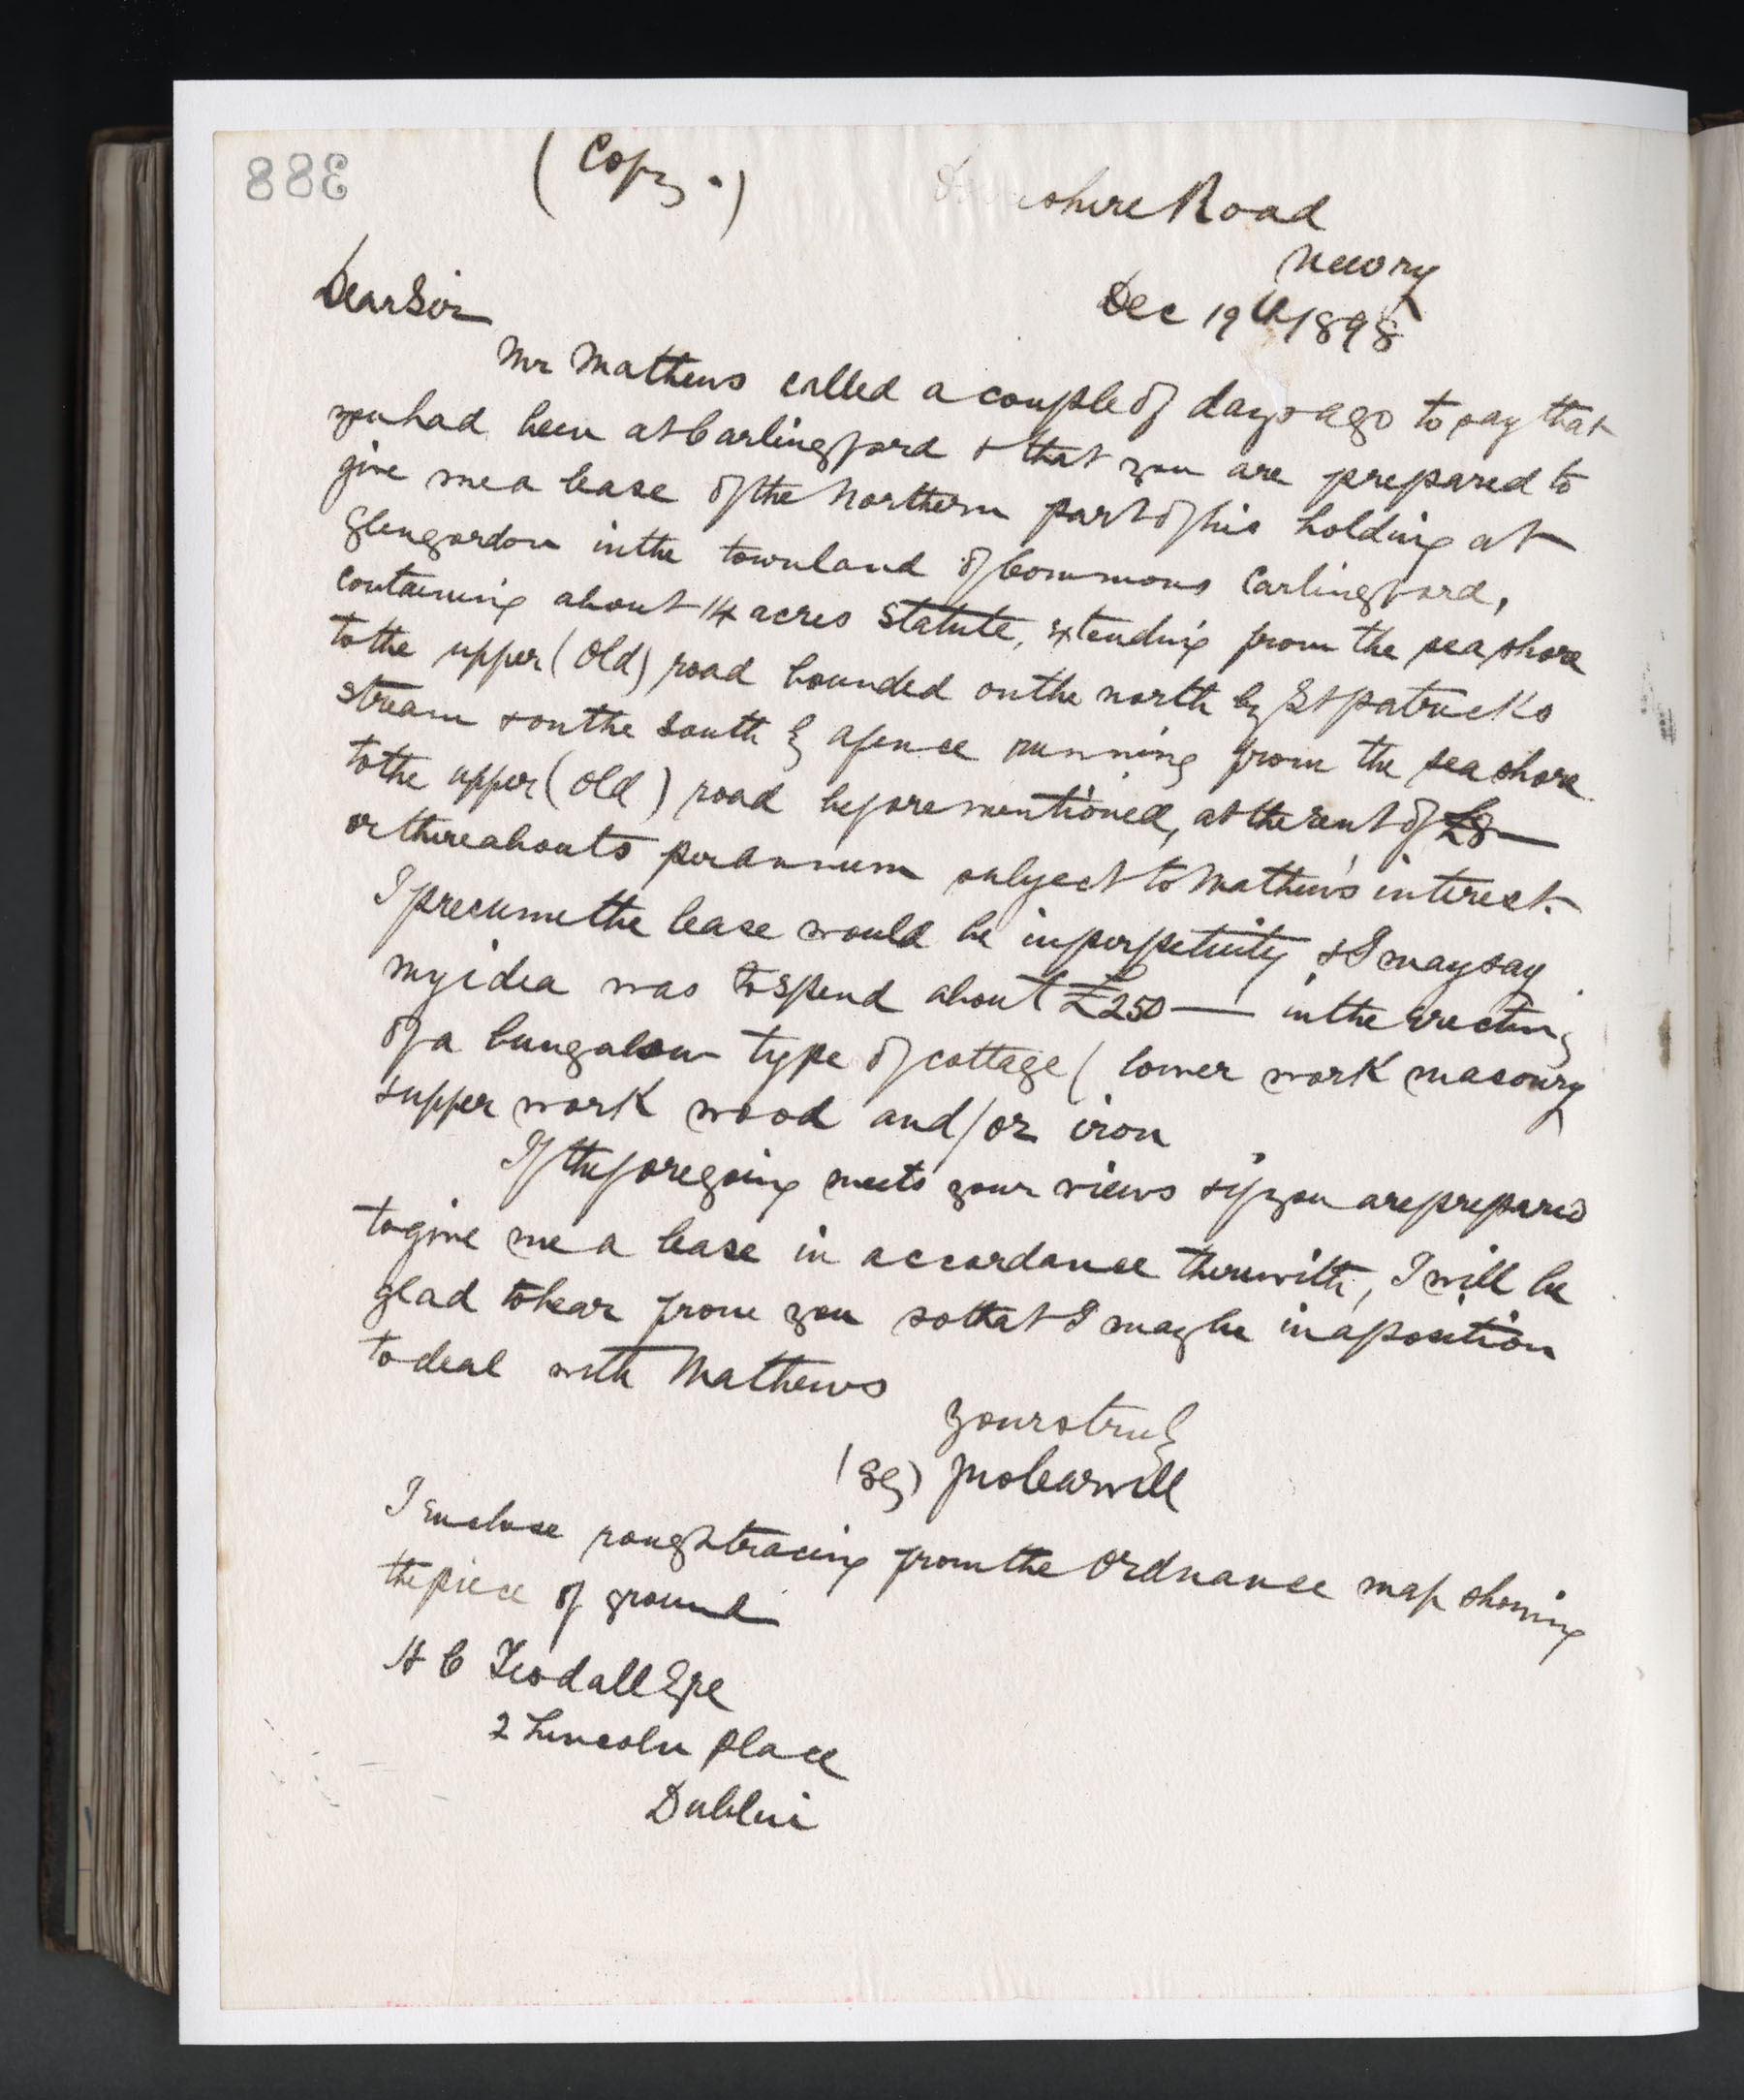 388
(Copy.)
Downshire Road
Newry
Dec 19th 1898
Dear Sir
Mr Mathews called a couple of days ago to say that
you had been at Carlingford & that you are prepared to
give me a lease of the Northern part of his holding at
Glengordon in the townland of Commons Carlingford,
containing about 14 acres statute, extending from the sea shore
to the upper (old) road bounded on the north by St patricks
stream & on the south by a fence running from the sea shore
to the upper (old) road before mentioned, at the rent of £8—
or thereabouts per annum subject to Mathew's interest.
I presume the lease would be in perpetuity & I may say
my idea was to spend about £250— in the erecting
of a bungalow type of cottage (lower work masonry
& upper work wood and/or iron
If the foregoing meets your views & if you are prepared
to give me a lease in accordance therewith, I will be
glad to hear from you so that I may be in a position
to deal with Mathews
yours truly
(sg)
I enclose rough tracing from the Ordnance map showing
the piece of ground
H C Tisdall Esqe
2 Lincoln place
Dublin